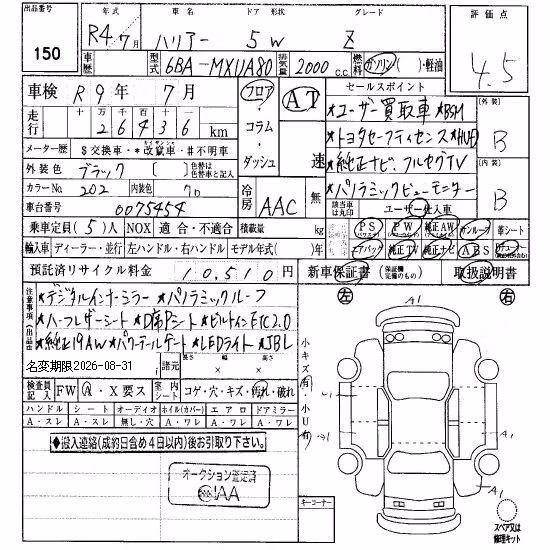 出品番号 年式 車名 ドア 形状 グレード 評価点
150 R4年 7月 ハリアー 5W Z 4.5
車歴 型式 6BA-MXUA80 排気量 2000 c.c. 燃料 ガソリン ( )・軽油
車検 R9年 7月 フロア・コラム・ダッシュ AT 速 セールスポイント
走行 十 万 千 百 十 一
26436 km
★ユーザー買取車 ★BSM
★トヨタセーフティセンス ★HUD
★純正ナビ、フルセグTV
★パノラミックビューモニター
外装 B
内装 B
メーター歴 $交換車・*改竄車・#不明車
外装色 ブラック [ ] 色替は色替車名と記入
カラーNo. 202 内装色 クロ
冷房 AAC 無 該当車は丸印 ユーザー仕入車
車台番号 0075454
乗車定員 (5)人 NOX 適合・不適合 積載量 kg
PS PW 純正AW サンルーフ 革シート
輸入車 ディーラー・並行 左ハンドル・右ハンドル モデル年式( )年
エアバック 純正TV 純正ナビ ABS
預託済リサイクル料金 10,510円 新車保証書 (保証機完備のもの) 取扱説明書
注意事項(出品店)
★デジタルインナーミラー ★パノラミックルーフ
★ハーフレザーシート ★D席Pシート ★ビルトインETC2.0
★純正19AW ★パワーテールゲート ★LEDライト ★JBL
名変期限2026-08-31 諸元 長さ 幅 高さ
検査員記入 FW A・X要ス 室内シート コゲ・穴・キズ・汚れ・破れ
ハンドル シート オーディオ ホイル(カバー) エアロ ドアミラー
A・スレ A・スレ 無し・穴 A・ワレ A・ワレ A・ワレ
◆搬入連絡(成約日含め4日以内)後お引取り下さい。
オークション査定済
NAA
小キズ(有) 小U(有)
キーコーナー
左 右
A1
A1
A1
A1
スペア又は修理キット